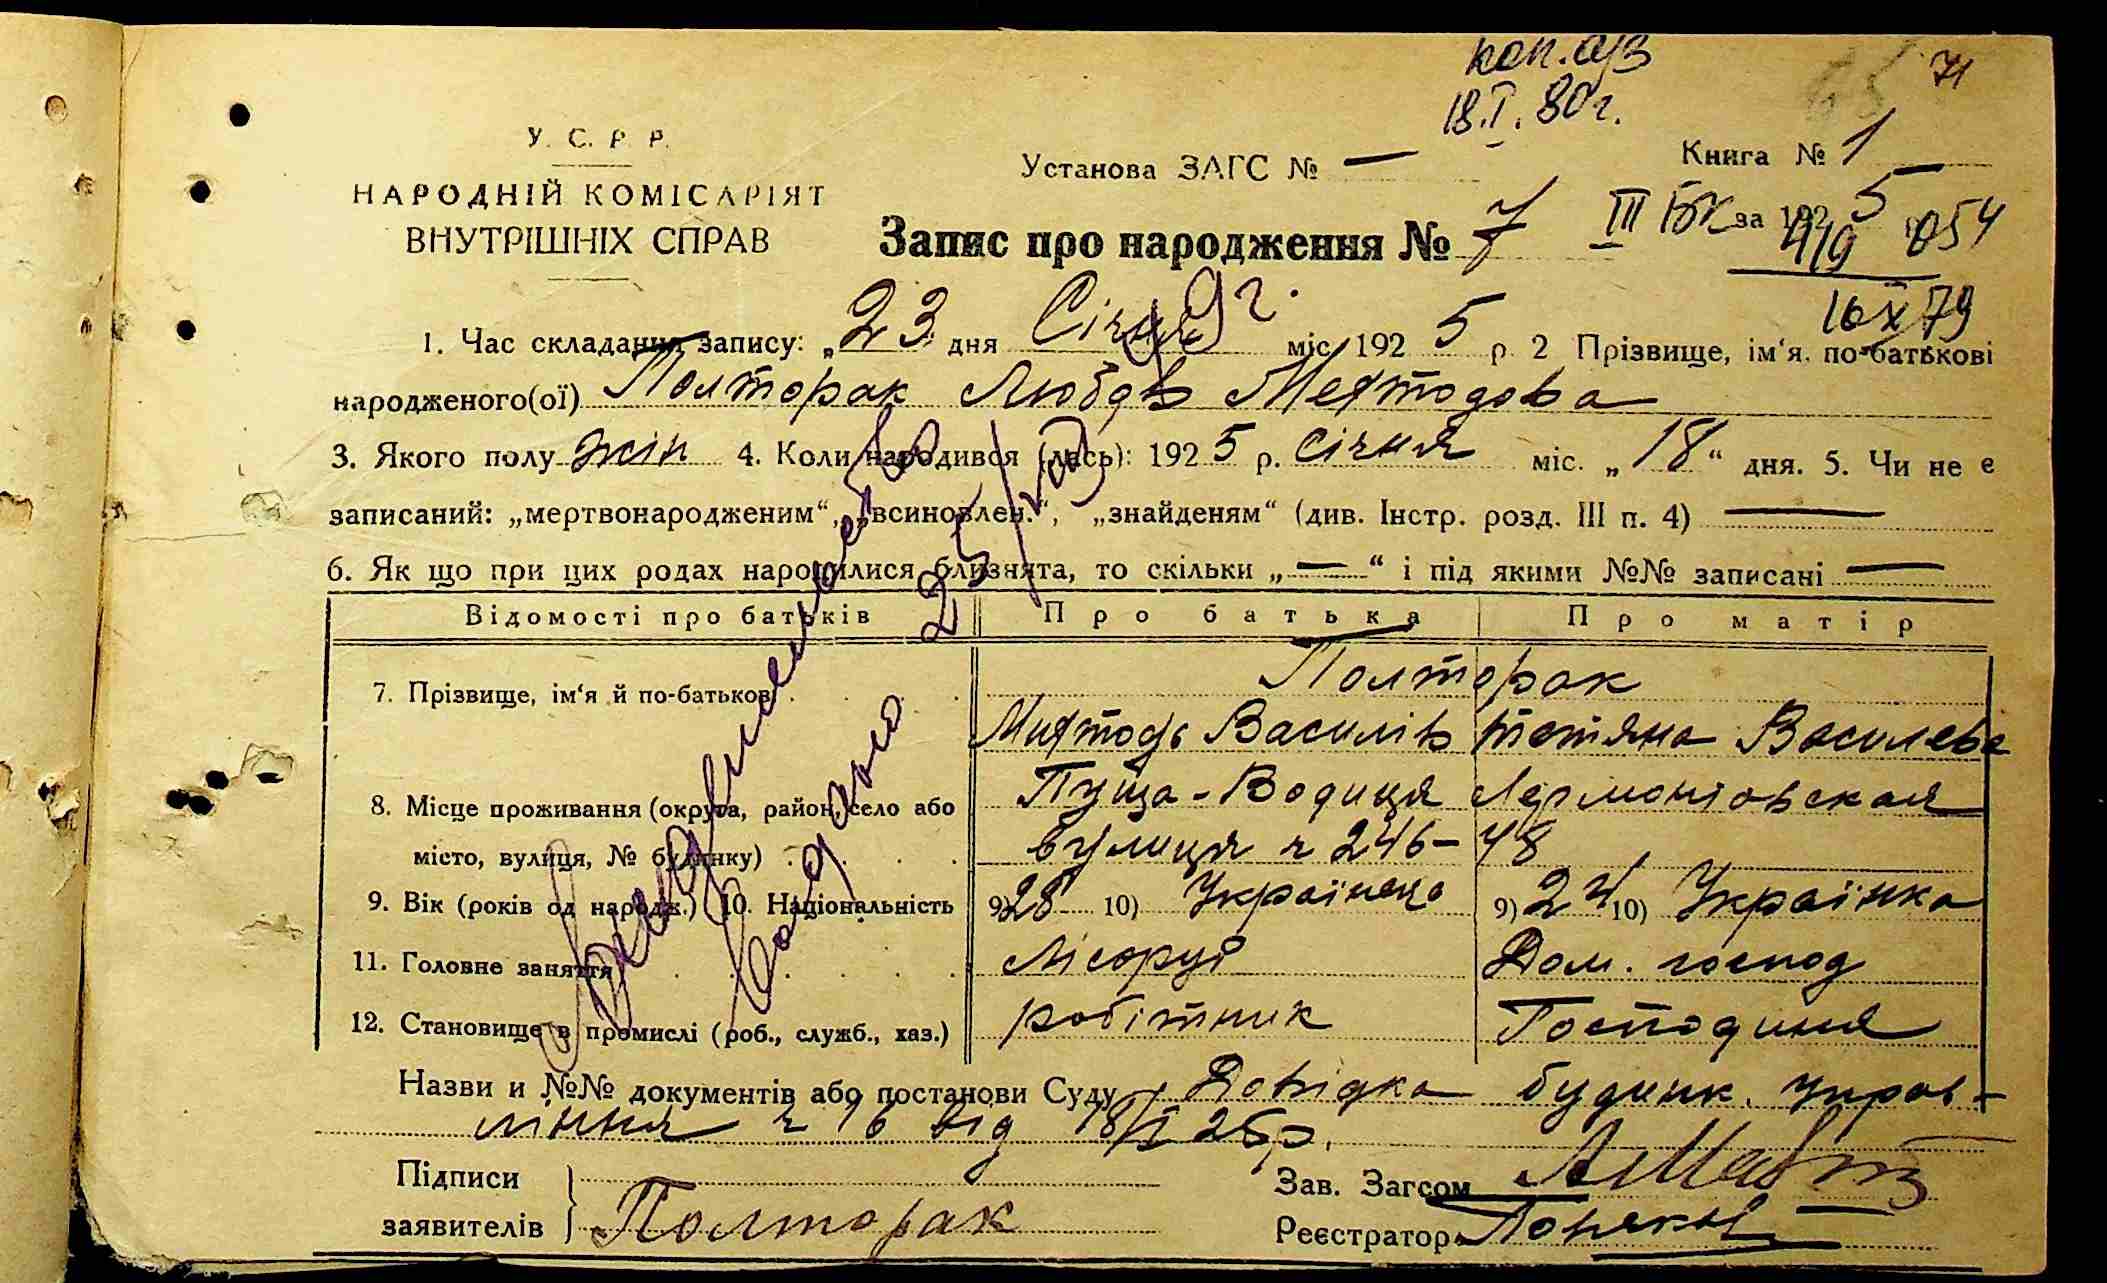 коп. а/з
71
18.I.80 г.
У. С. Р. Р.
НАРОДНІЙ КОМІСАРІЯТ
ВНУТРІШНІХ СПРАВ
Установа ЗАГС № —
Книга № 1
Запис про народження № 7
III БК за 192 5
419 054
16 X 79
1. Час складання запису: „23 дня Січня міс. 192 5 р. 2 Прізвище, ім'я, по-батькові
народженого(ої) Полторак Любов Мефтодова
3. Якого полу жін 4. Коли народився (лась): 192 5 р. січня міс. „18“ дня. 5. Чи не є
записаний: „мертвонародженим“, „всиновлен.“, „знайденям“ (див. Інстр. розд. III п. 4) —
6. Як що при цих родах народилися близнята, то скільки „—“ і під якими №№ записані —
Відомості про батьків Про батька Про матір
7. Прізвище, ім'я й по-батькові Полторак
Мифтодь Василів Тетяна Василева
8. Місце проживання (округа, район, село або Пуща-Водиця Лермонтовская
місто, вулиця, № будинку) вулиця ч 246-48
9. Вік (років од народж.) 10. Національність 9) 28 10) Українець 9) 24 10) Українка
11. Головне заняття Лісоруб Дом. господ
12. Становище в промислі (роб., служб., хаз.) робітник Господиня
Назви и №№ документів або постанови Суду Довідка будинк. управ-
ління ч 16 від 18/I 25 р.
Підписи
заявителів Полторак
Зав. Загсом
Реєстратор